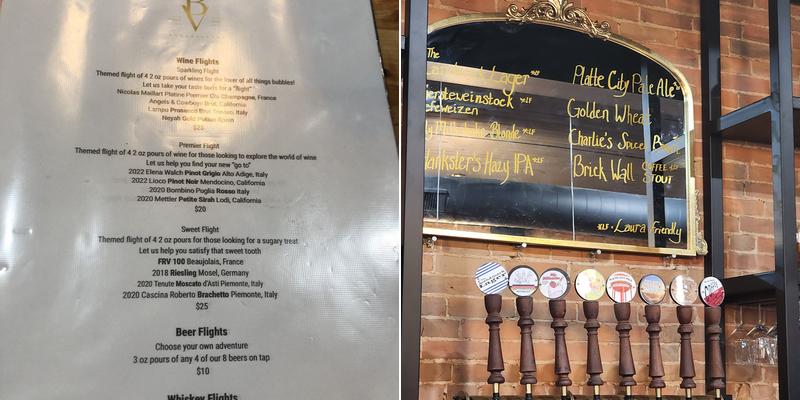 B
Wine Flights
Sparkling Flight
Themed flight of 4 2 oz pours of wines for the lover of all things bubbles!
Let us take your taste buds for a "flight"
Nicolas Maillart Platine Premier Cru Champagne, France
Angels & Cowboys Brut, California
Lampo Prosecco Brut Treviso, Italy
Neyah Gold Spain
$25
Premier Flight
Themed flight of 4 2 oz pours of wine for those looking to explore the world of wine
Let us help you find your new "go to"
2022 Elena Walch Pinot Grigio Alto Adige, Italy
2022 Lioco Pinot Noir Mendocino, California
2020 Bombino Puglia Rosso Italy
2020 Mettler Petite Sirah Lodi, California
$20
Sweet Flight
Themed flight of 4 2 oz pours for those looking for a sugary treat
Let us help you satisfy that sweet tooth
FRV 100 Beaujolais, France
2018 Riesling Mosel, Germany
2020 Tenute Moscato d'Asti Piemonte, Italy
2020 Cascina Roberto Brachetto Piemonte, Italy
$25
Beer Flights
Choose your own adventure
3 oz pours of any 4 of our 8 beers on tap
$10
Whiskey Flights
The
Lager *LF
Blonde *LF
Hazy IPA *LF
Platte City Pale Ale
Golden Wheat
Charlie's Spiced
Brick Wall Coffee Stout
*LF - Laura Friendly